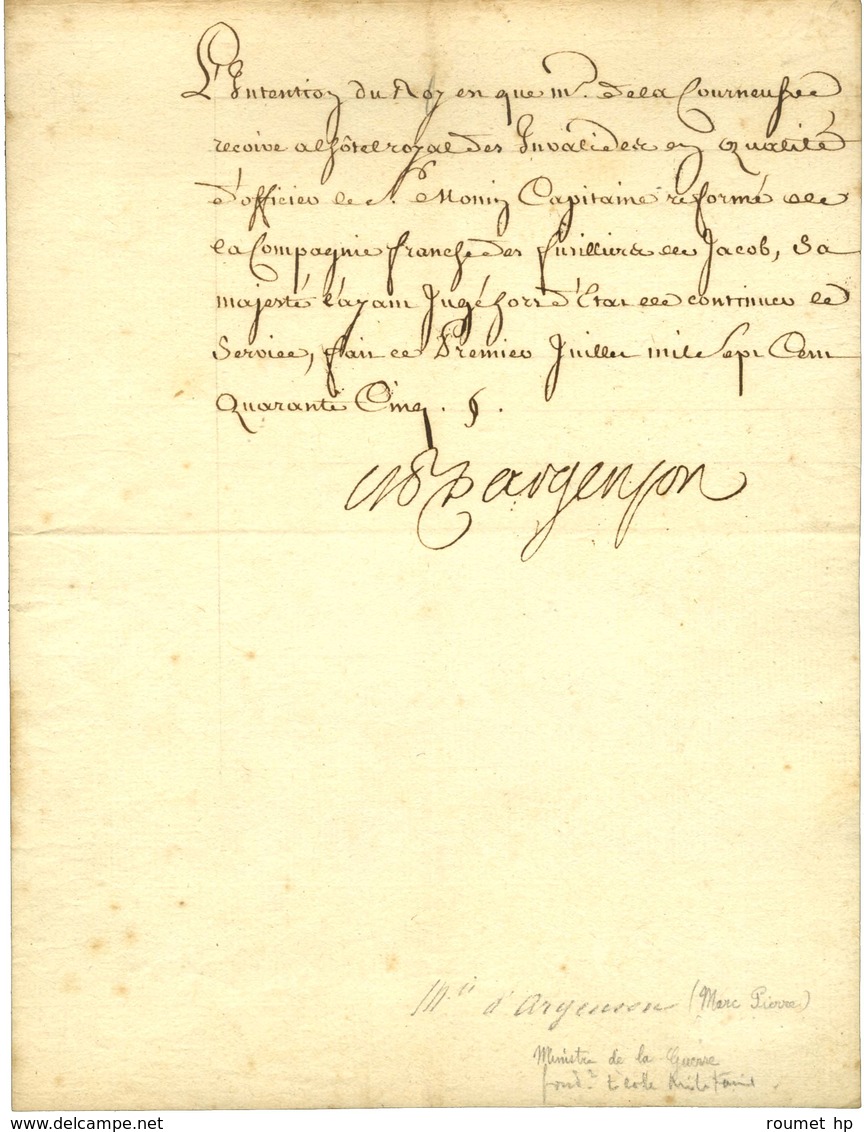 L'Intention du Roy est que Mr. de la Courneufve
recoive a l'hôtel royal des Invalides en Qualité
d'officier le S. Monin Capitaine reformé de
la Compagnie franche des fusilliers de Jacob, Sa
majesté l'ayant Jugé hors d'Etat de continuer le
Service, fait ce Premier Juillet mil Sept Cent
Quarante Cinq. §.
M. D. d'argenson
M.is d'Argenson (Marc Pierre)
Ministre de la Guerre
fond.r Ecole Militaire.
roumet hp